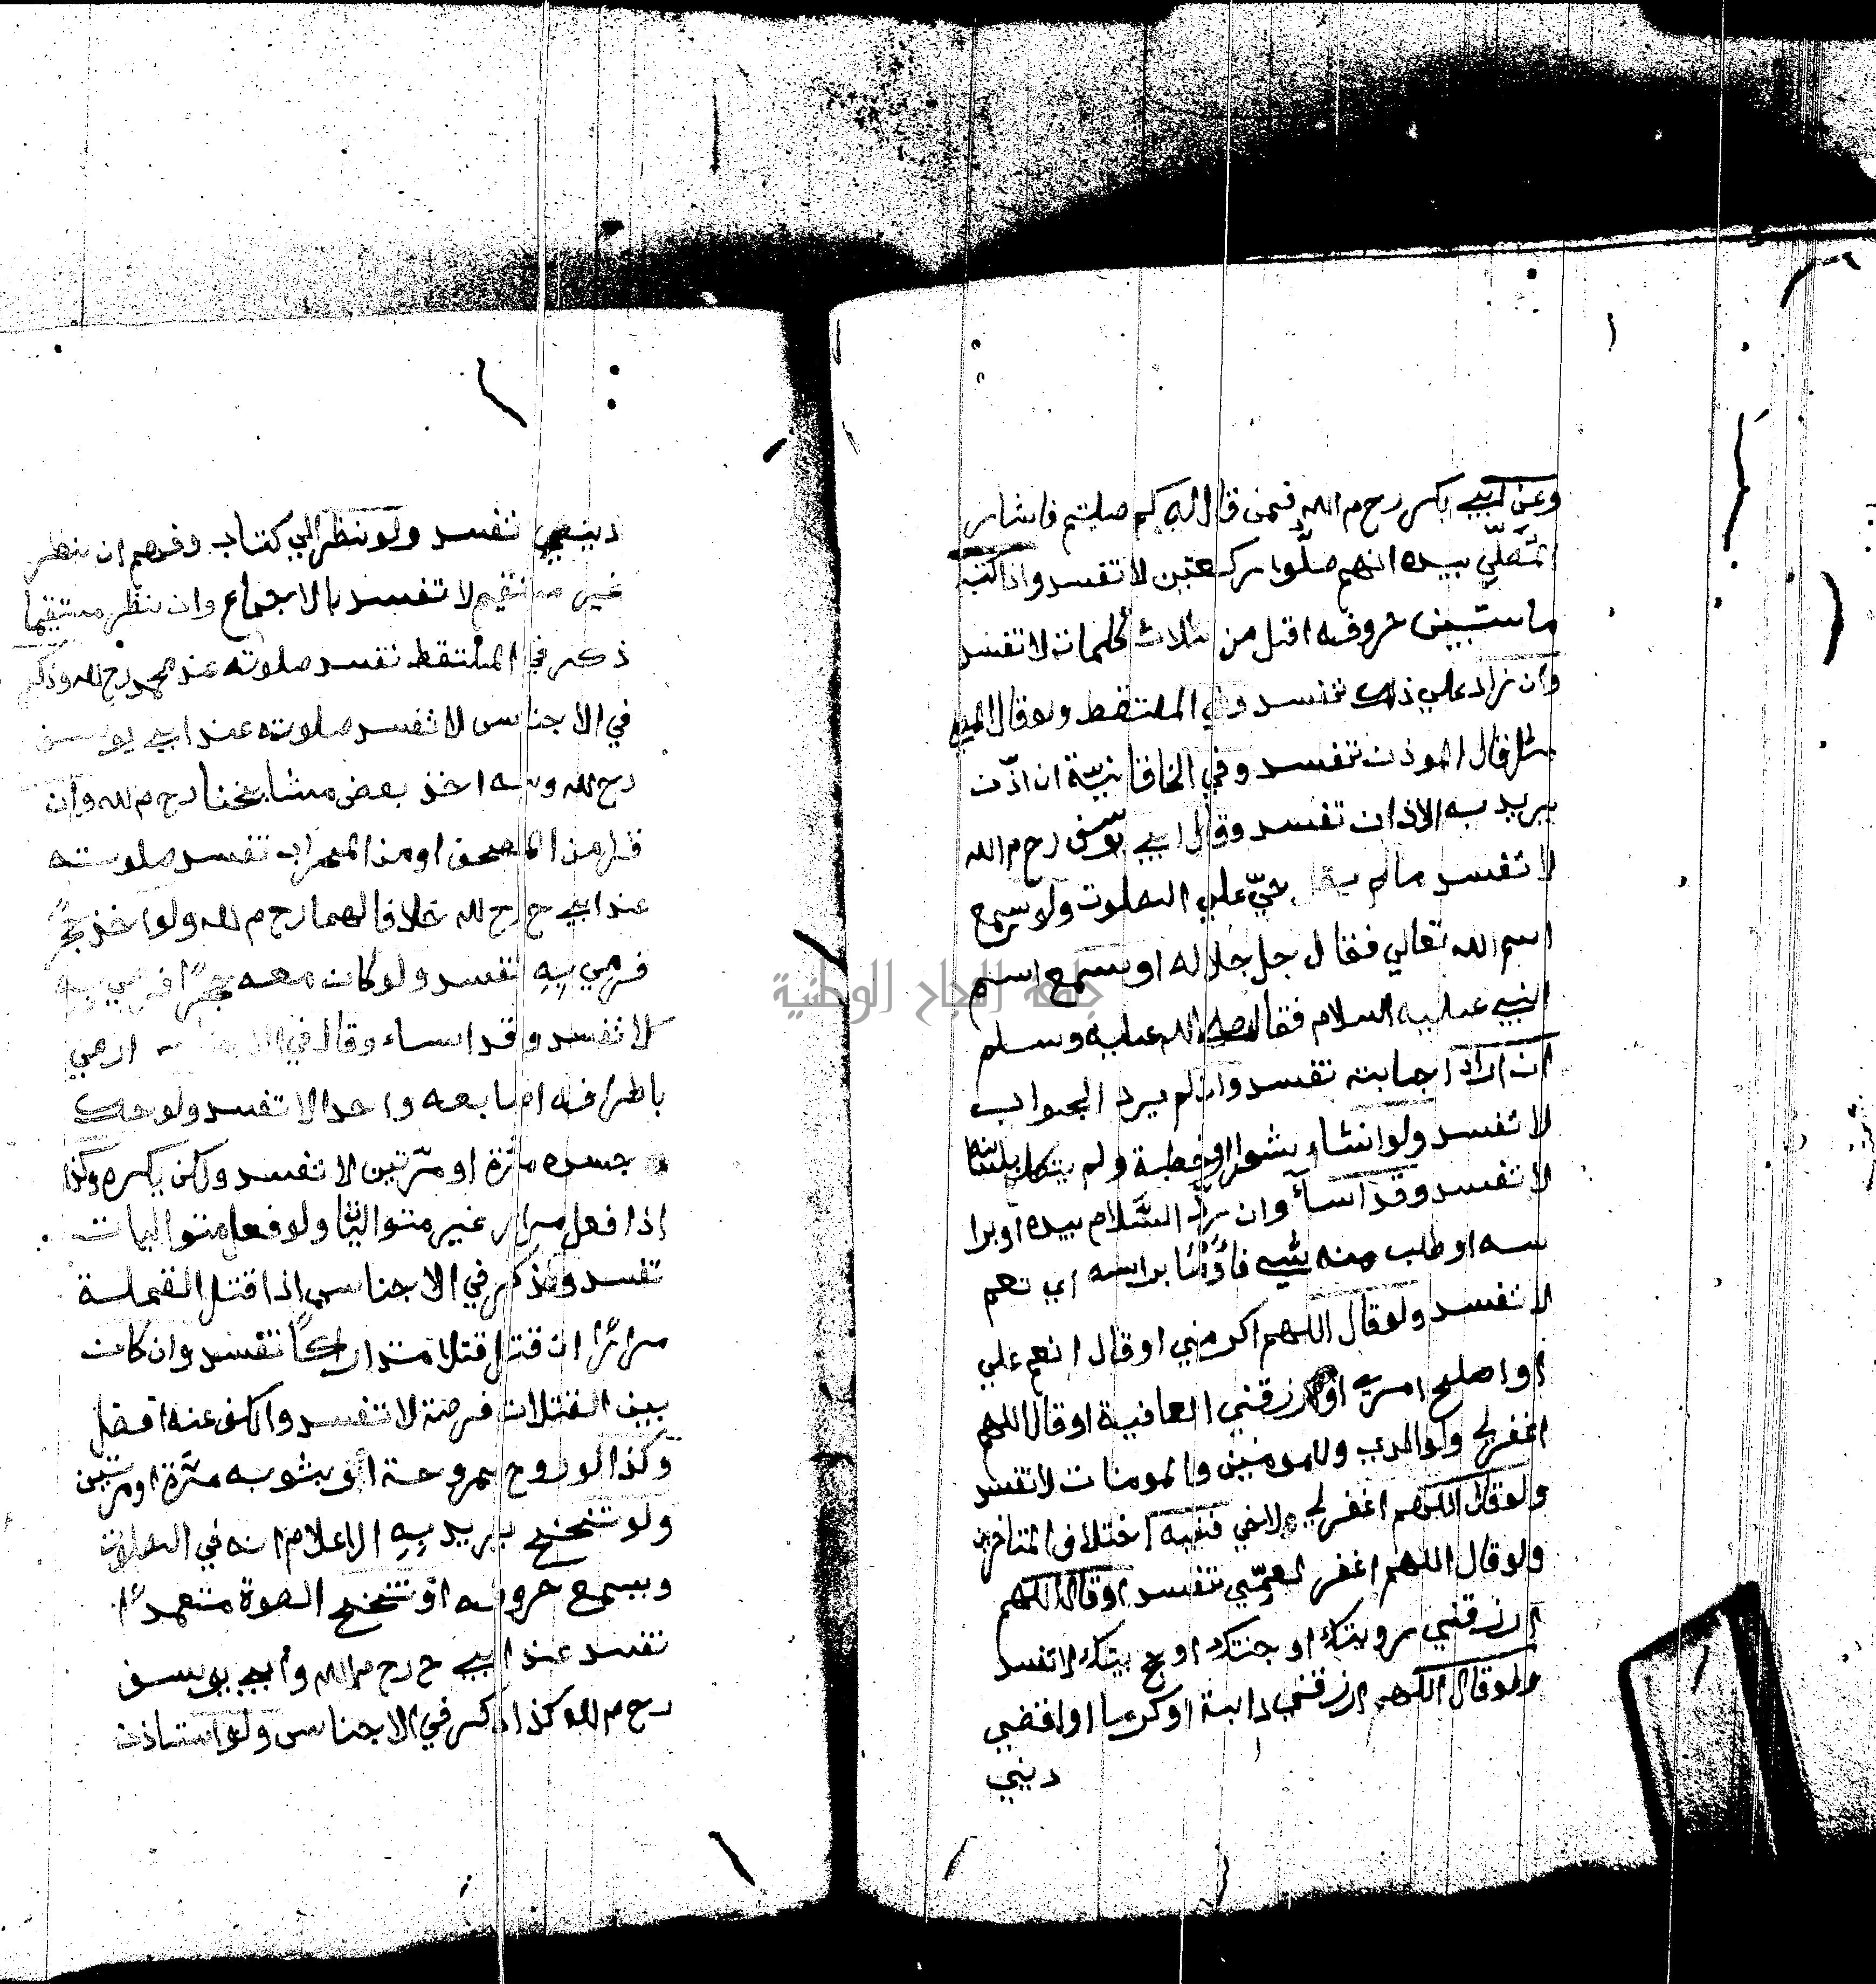 وعن ابي بكر رح م الله فيمن قال له كم صليتم فاشار
المصّلّي بيده انهم صلّوا ركعتين لا تفسد واذا كتب
ما ستبين حروفه اقل من ثلاث كلمات لا تفسد
وان زاد علي ذلك تفسد وفي الملتقط ولو قال
مثل قال الموذن تفسد وفي الخاقانية ان اذّن
يريد به الاذان تفسد وقال ابي يوسف رح م الله
لا تفسد مالم يقل حيّ علي الصلوت ولو سمع
اسم الله تعالي فقال جل جلاله او سمع اسم
النبي عليه السلام فقال صلي الله عليه وسلم
ان اراد اجابته تفسد وان لم يرد الجواب
لا تفسد ولو انشاء شعرا او خطبة ولم يتكلم بلسانه
لا تفسد وقد اسآ وان ردّ السّلام بيده او برا
سه او طلب منه شيي فاوما براسه اي نعم
لا تفسد ولو قال اللهم اكرمني او قال انعم علي
او اصلح امري او ارزقني العافية او قال اللهم
اغفرلي ولوالدي وللمومنين والمومنات لا تفسد
ولو قال اللهم اغفرلي ولاخي ففيه اختلاف المتاخرين
ولو قال اللهم اغفر لعمّي تفسد او قال اللهم
ارزقني رويتك او جنتك او حج بيتك لا تفسد
ولو قال اللهم ارزقني دابة او كرما او اقضي
ديني
ديني تفسد ولو نظر الي كتاب وفهم ان نظر
غير مستقيم لا تفسد بالاجماع وان نظر مستقيما
ذكر في الملتقط تفسد صلوته عند محمد رح الله وذكر
في الاجناس لا تفسد صلوته عند ابي يوسف
رح الله وبه اخذ بعض مشايخنا رح م الله وان
قرا من المصحف او من المحراب تفسد صلوته
عند ابي ح رح لله خلافا لهما رح م الله ولو اخذ حجرًا
فرمي بِهِ تفسد ولو كان معه حجرًا فرمي به
لا تفسد وقد اساء وقال في ارمي
باطراف اصابعه واحدا لا تفسد ولو حك
جسده مرّة او مرّتين لا تفسد ولكن يكره وكذا
اذا فعل مرارا غير متواليّا ولو فعل متواليات
تفسد وذكر في الاجناس اذا قتل القملة
مرارًا ان قتل قتلا متداركًا تفسد وان كان
بين القتلات فرصة لا تفسد والكف عنه افضل
وكذا لو روح بمروحة او بثوبه مرّة او مرتين
ولو تنحنح يريد بِهِ الاعلام انه في الصلوت
ويسمع حروفه او تنحنح الصوة متعمدًا
تفسد عند ابي ح رح م الله وابي يوسف
رح م الله كذا ذكر في الاجناس ولو استاذن
جامعة النجاح الوطنية